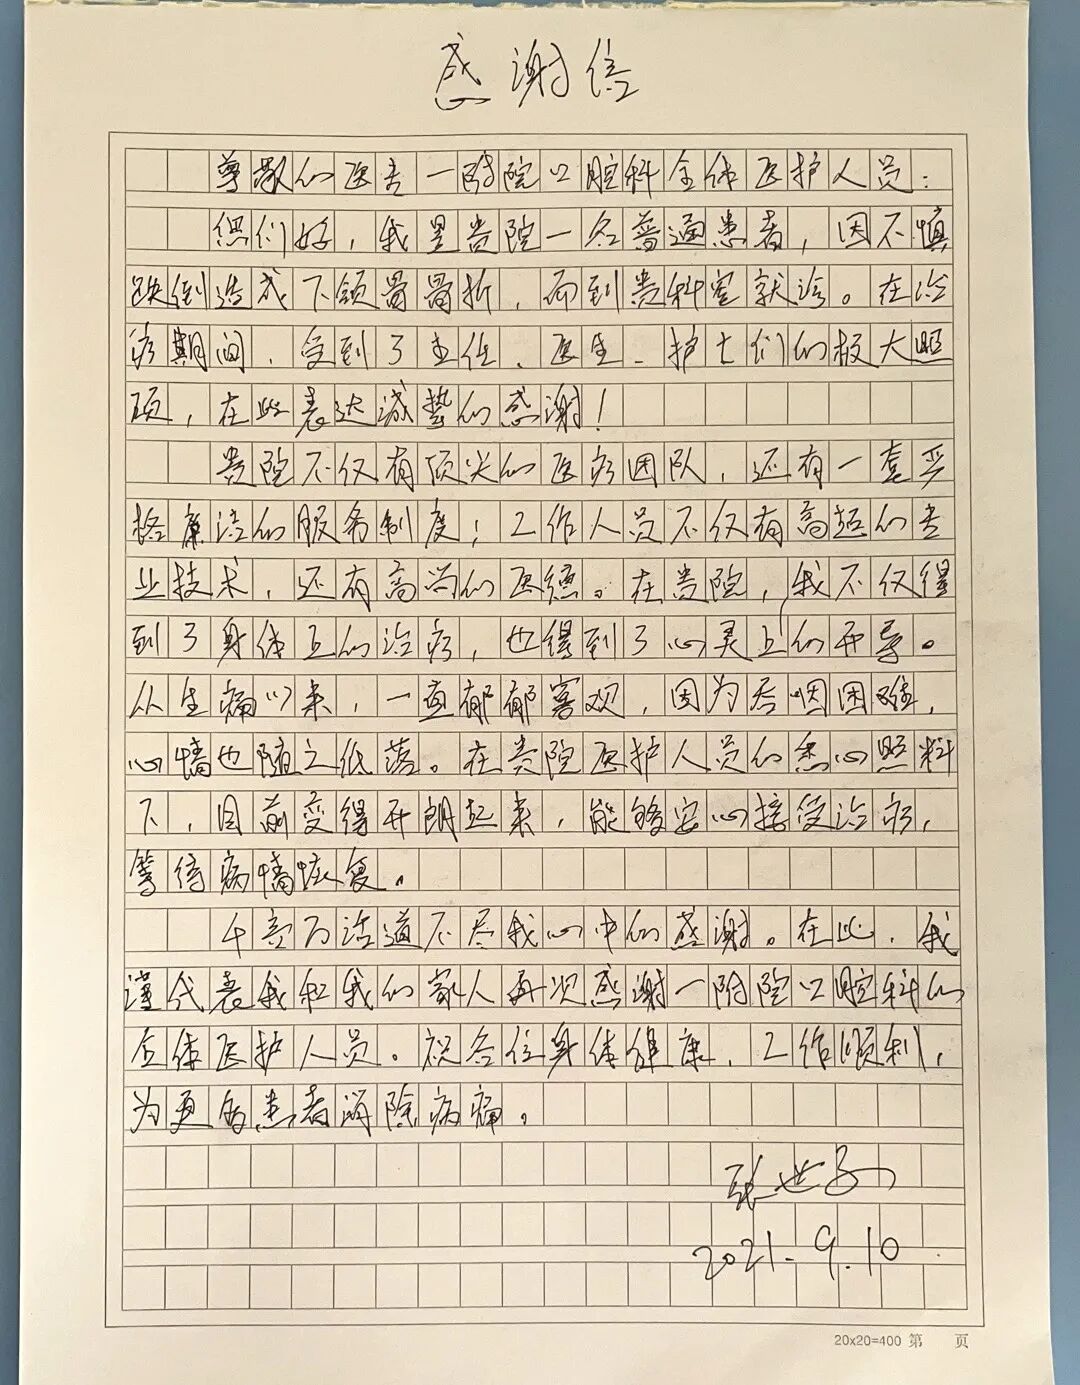 感谢信
尊敬的医专一附院口腔科全体医护人员:
您们好,我是贵院一名普通患者,因不慎
跌倒造成下颌骨骨折,而到贵科室就诊。在治
疗期间,受到了主任、医生、护士们的极大照
顾,在此表达诚挚的感谢!
贵院不仅有顶尖的医疗团队,还有一套严
格廉洁的服务制度;工作人员不仅有高超的专
业技术,还有高尚的医德。在贵院,我不仅得
到了身体上的治疗,也得到了心灵上的开导。
从生病以来,一直郁郁寡欢,因为吞咽困难,
心情也随之低落。在贵院医护人员的悉心照料
下,目前变得开朗起来,能够安心接受治疗,
等待病情恢复。
千言万语道不尽我心中的感谢。在此,我
谨代表我和我的家人再次感谢一附院口腔科的
全体医护人员。祝各位身体健康,工作顺利,
为更多患者消除病痛。
张世
2021.9.10
20x20=400 第 页